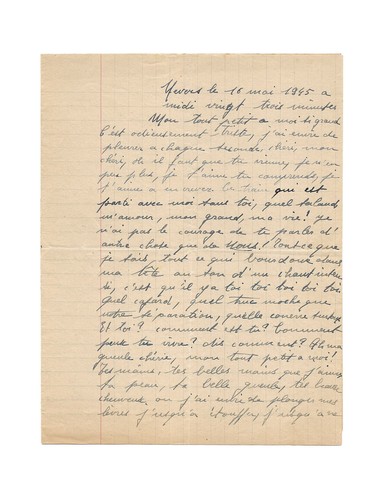 le 16 mai 1945 a
midi vingt trois minutes
Mon tout petit a moi si grand
C'est odieusement triste, j'ai envie de
pleurer a chaque seconde, chéri, mon
chéri, oh il faut que tu viennes, je n'en
peux plus, je t'aime tu comprends, je
t'aime a en crever le train qui est
parti avec moi sans toi, quel salaud
m'amour, mon grand, ma vie! Je
n'ai pas le courage de te parler d'
autre chose que de nous! Tout ce que
je sais, tout ce qui bourdonne dans
ma tête au son d'un chant
c'est qu'il y a toi toi toi toi toi
quel cafard, quel truc moche que
notre séparation, quelle connerie
Et toi? comment es tu? Comment
peux tu vivre? dis comment? Oh ma
gueule chérie, mon tout petit a moi!
Tes mains, tes belles mains que j'aime
ta peau, ta belle gueule, tes
cheveux ou j'ai envie de plonger mes
lèvres jusqu'a étouffer, jusqu'a